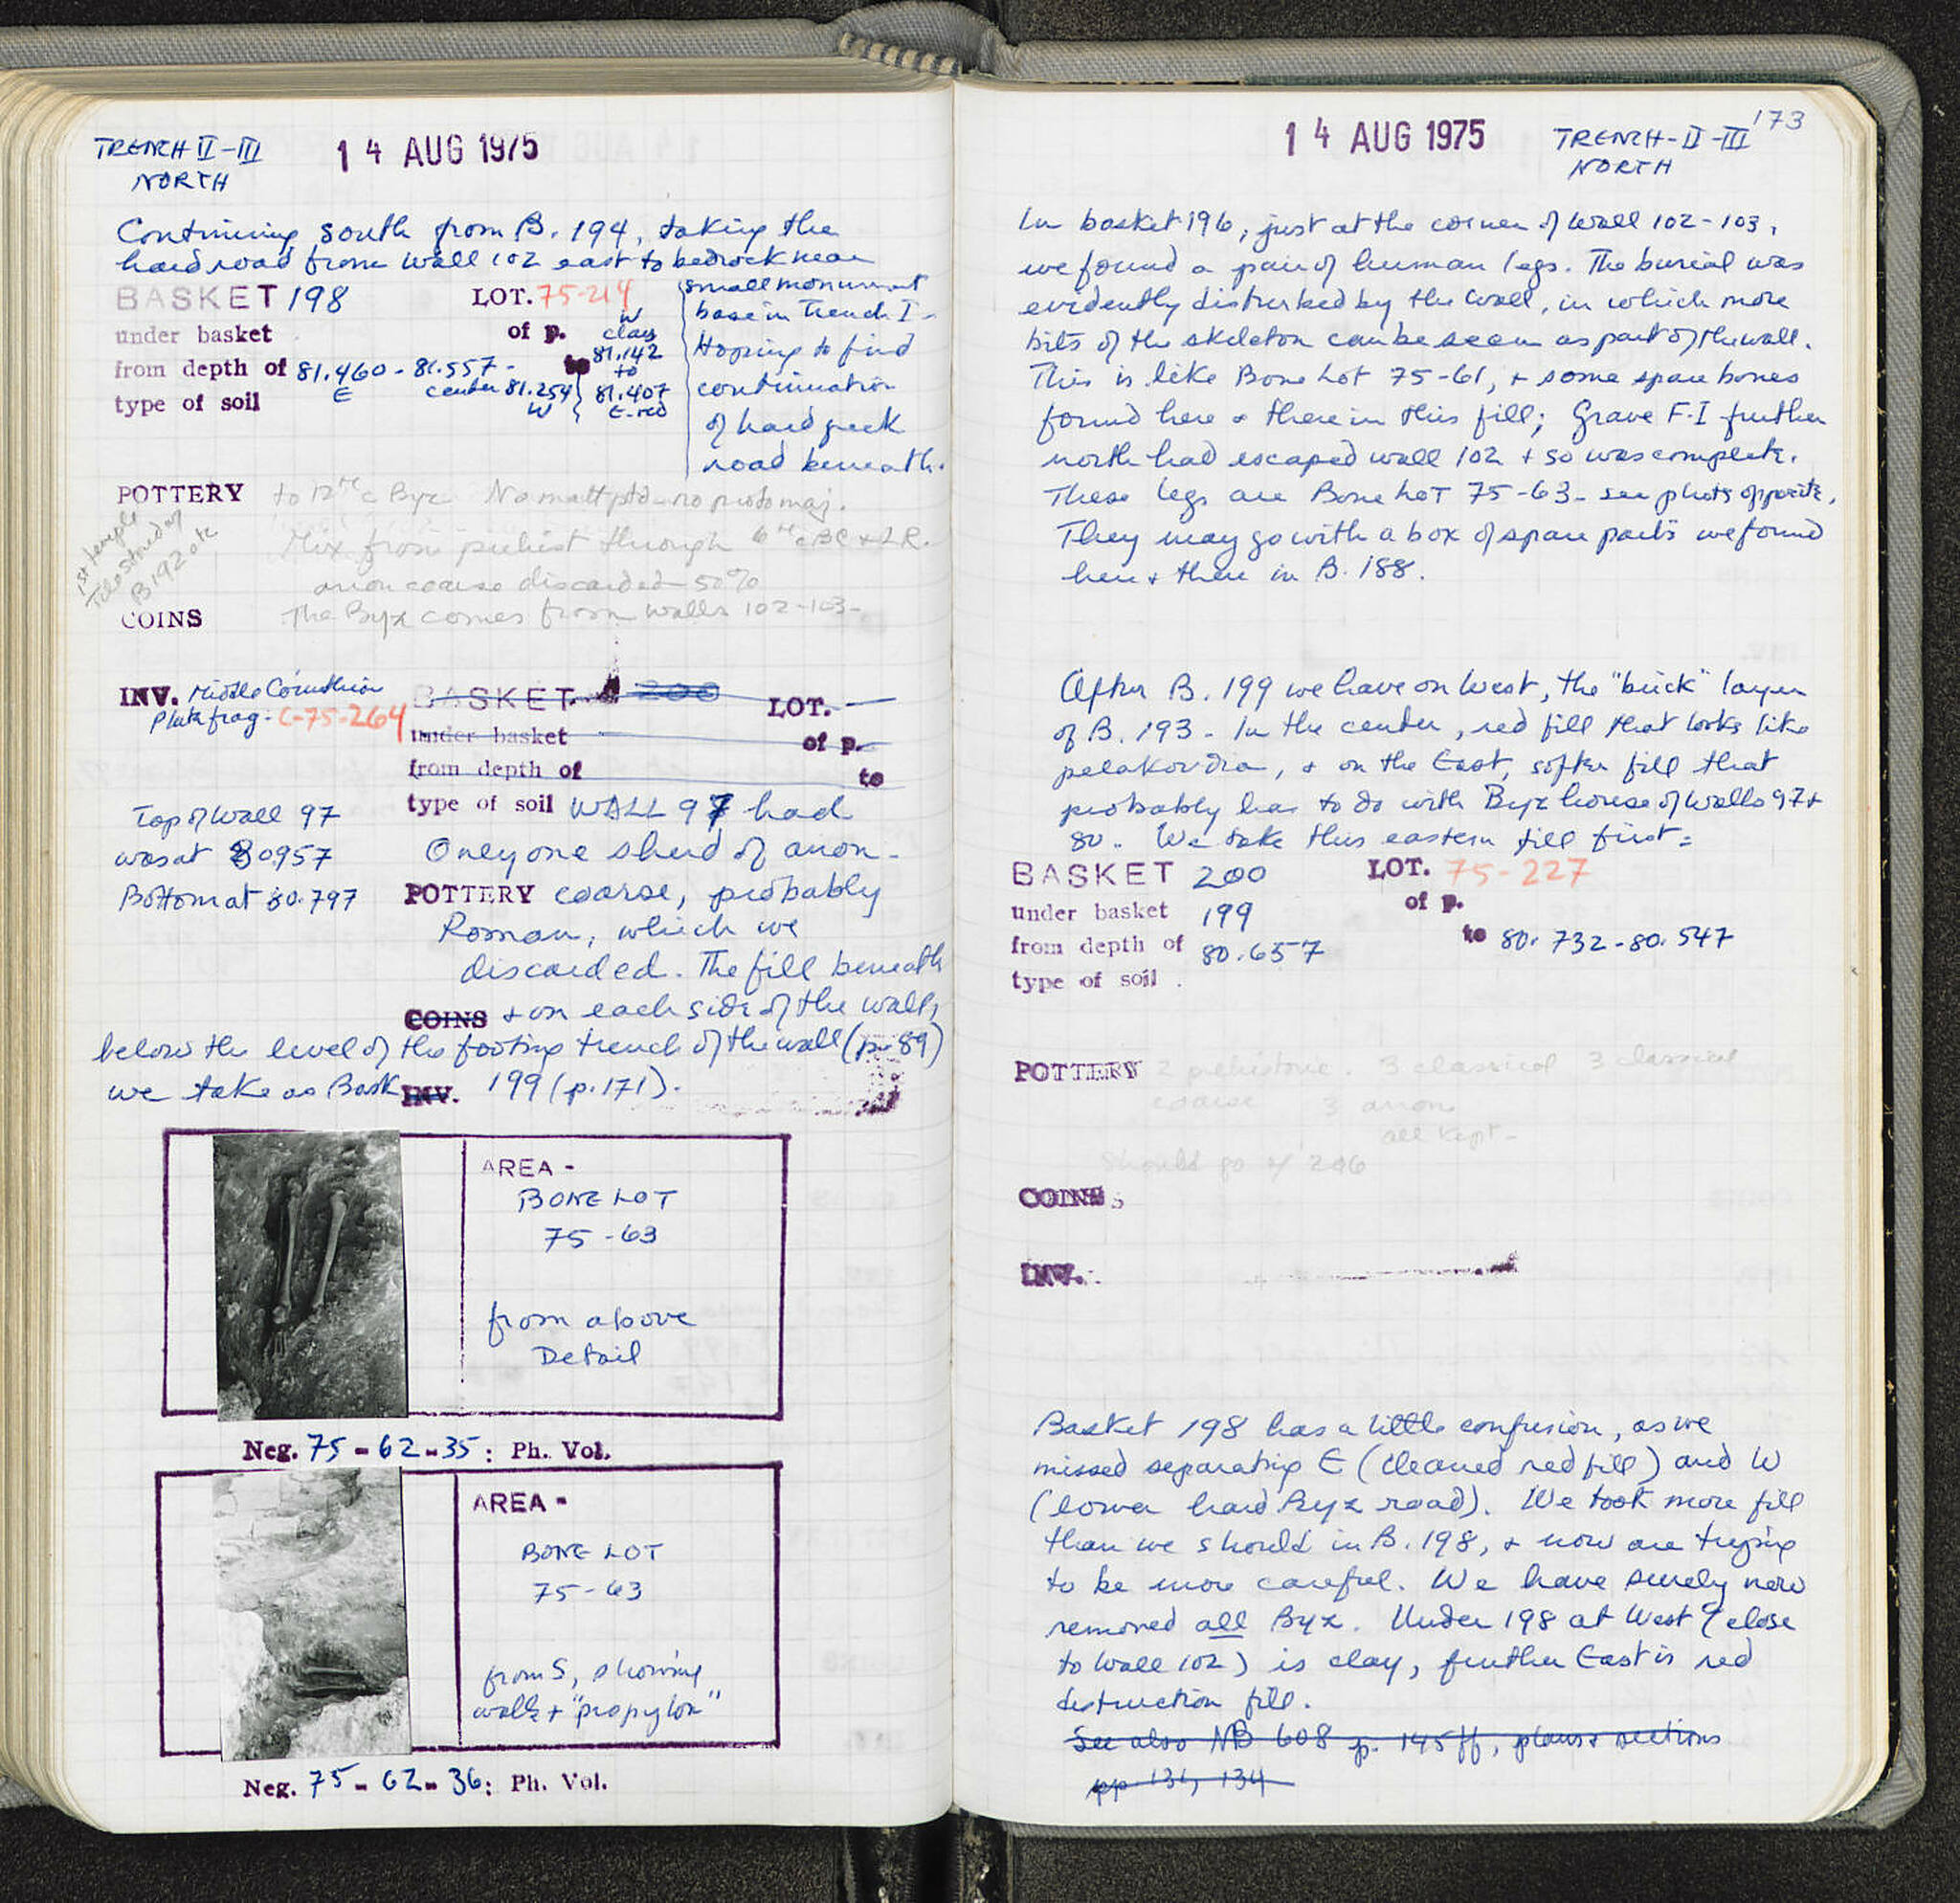 TRENCH II-III
NORTH
14 AUG 1975
Continuing south from B. 194, taking the
hard road from Wall 102 east to bedrock near
small monument
base in Trench I -
Hoping to find
continuation
of hard greek
road beneath.
BASKET 198
LOT. 75-214
under basket
of p.
from depth of 81.460 - 81.557 -
E
center 81.254
W
to
W
clay
81.142
to
81.407
E. red
type of soil
POTTERY to 12th c Byz. No matt ptd no protomaj.
Mix from prehist through 6th c BC & LR.
anon coarse discarded 50%
The Byz comes from walls 102-103-
1st temple
Tile stored w/
B 192 etc
COINS
INV. Middle Corinthian
plate frag. C-75-264
BASKET 200
LOT. —
under basket
of p.
from depth of
to
type of soil WALL 97 had
Only one sherd of anon.
POTTERY coarse, probably
Roman, which we
discarded. The fill beneath
COINS & on each side of the wall,
below the level of the footing trench of the wall (p. 89)
we take as Bask INV. 199 (p. 171).
Top of Wall 97
was at 80.957
Bottom at 80.797
AREA -
BONE LOT
75-63
from above
Detail
Neg. 75-62-35: Ph. Vol.
AREA -
BONE LOT
75-63
from S, showing
walls + "propylon"
Neg. 75-62-36: Ph. Vol.
173
14 AUG 1975
TRENCH-II-III
NORTH
In basket 196, just at the corner of Wall 102-103,
we found a pair of human legs. The burial was
evidently disturbed by the wall, in which more
bits of the skeleton can be seen as part of the wall.
This is like Bone Lot 75-61, & some spare bones
found here & there in this fill; Grave F-I further
north had escaped wall 102 & so was complete.
These legs are Bone Lot 75-63 - see photo opposite.
They may go with a box of spare parts we found
here & there in B. 188.
After B. 199 we have on West, the "brick" layer
of B. 193 - In the center, red fill that looks like
pelakoudia, & on the East, softer fill that
probably has to do with Byz house of walls 97 &
80. We take this eastern fill first:
BASKET 200
LOT. 75-227
under basket 199
of p.
from depth of 80.657
to 80.732-80.547
type of soil
POTTERY 2 prehistoric. 3 classical 3 classical
coarse 3 anon
all kept-
Should go w/ 206
COINS
INV.
Basket 198 has a little confusion, as we
missed separating E (cleaned red fill) and W
(lower hard Byz road). We took more fill
than we should in B. 198, & now are trying
to be more careful. We have surely now
removed all Byz. Under 198 at West (close
to Wall 102) is clay, further East is red
destruction fill.
See also NB 608 p. 145 ff, plans & sections
pp 131, 134